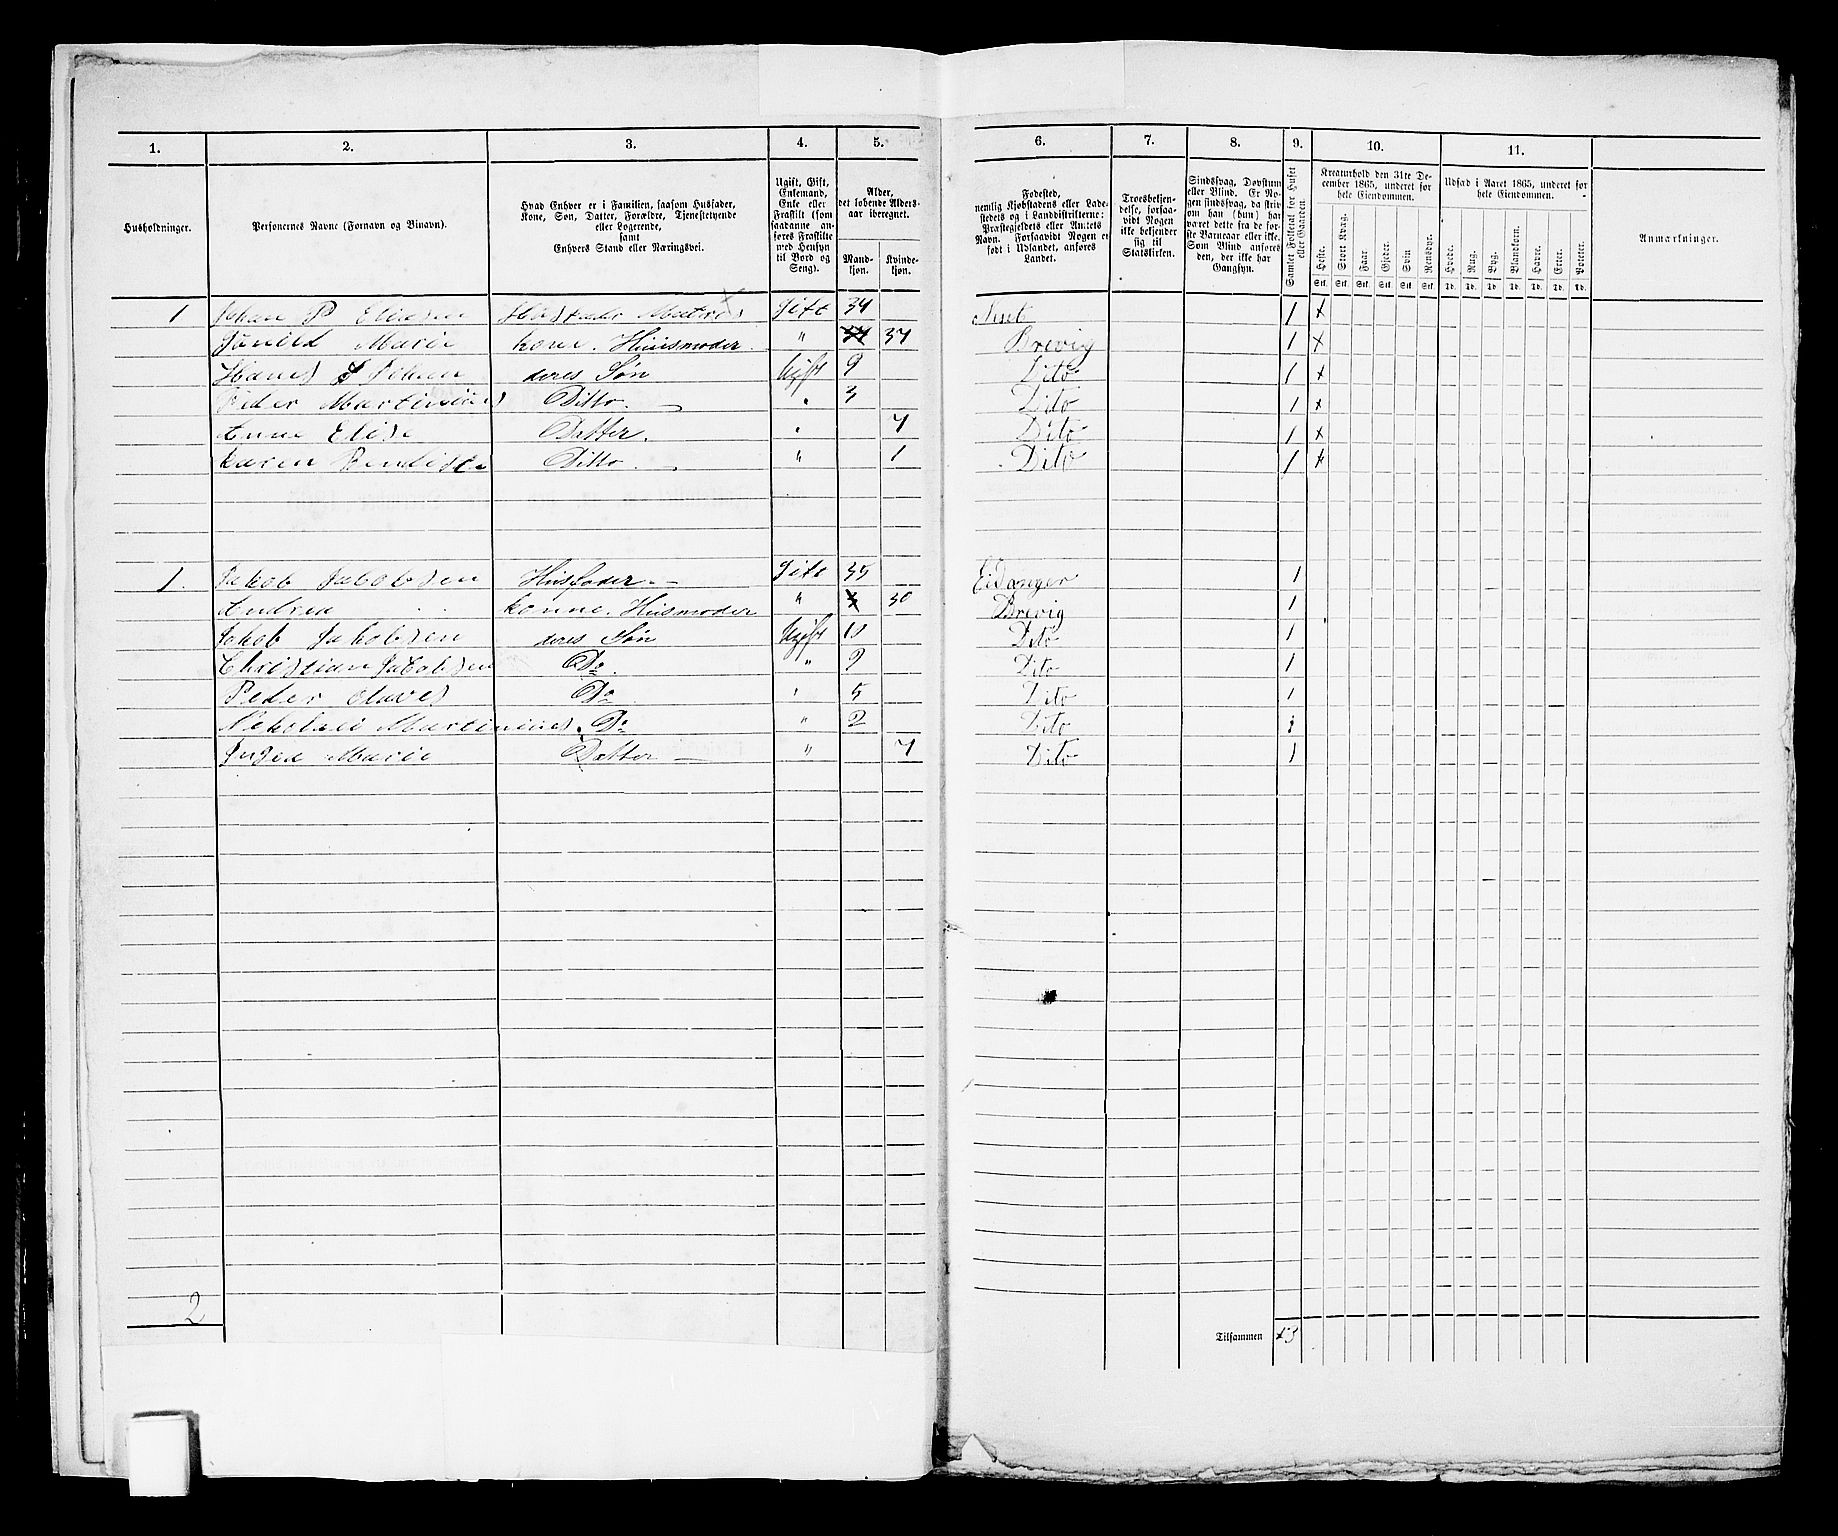 1. 2. 3. 4. 5. 6. 7. 8. 9. 10. 11.
Husholdninger.
Personernes Navne (Fornavn og Binavn).
Hvad Enhver er i Familien, saasom Husfader,
Kone, Søn, Datter, Forældre, Tjenestetyende
eller Logerende,
samt
Enhvers Stand eller Næringsvei.
Ugift, Gift,
Enkemand,
Enke eller
Fraskilt (som
saadanne an-
føres Fraskilte
med Hensyn
til Bord og
Seng).
Alder,
det løbende Alders-
aar iberegnet.
Mand-
kjøn.
Kvinde-
kjøn.
Fødested,
nemlig Kjøbstadens eller Lade-
stedets og i Landdistrikterne:
Præstegjeldets eller Amtets
Navn. Forsaavidt Nogen er
født i Udlandet, anføres
Landet.
Troesbekjen-
delse, forsaa-
vidt Nogen
ikke bekjender
sig til
Statskirken.
Sindssvag, Døvstum
eller Blind. Er No-
gen sindssvag, da striv
om han (hun) har
været dette fra de før-
ste Barneaar eller ikke.
Som Blind anføres
den, der ikke har
Gangsyn.
Samlet Folketal for Huset
eller Gaarden.
Kreaturhold den 31te De-
cember 1865, underet for
hele Eiendommen.
Heste. Stort Kvæg. Faar. Gjeder. Svin. Rensdyr.
Stk. Stk. Stk. Stk. Stk. Stk.
Udsæd i Aaret 1865, underet for
hele Eiendommen.
Hvede. Rug. Byg. Blandkorn. Havre. Erter. Poteter.
Td. Td. Td. Td. Td. Td. Td.
Anmærkninger.
1 Johan P Eliasen Husfader Matros Gift 34 1 x
Gunild Marie kone. Huusmoder " 37 Brevig 1 x
Hans Johan deres Søn Ugift 9 Dito 1 x
Peder Martinius Ditto 3 Dito 1 x
Anne Elise Datter. " 7 Dito 1 x
Karen Ditto " 1 Dito 1 x
1. Jakob Jacobsen Husfader Gift 35 Eidanger 1
Andrea konne. Husmoder " 30 Brevig 1
Jakob Jakobsen deres Søn Ugift 10 Dito 1
Christian Jacobsen Do " 9 Dito 1
Peder Olaves Do " 5 Dito 1
Nikolai Martinius. Do " 2 Dito 1
Marie Datter " 7 Dito 1
2 Tilsammen 13